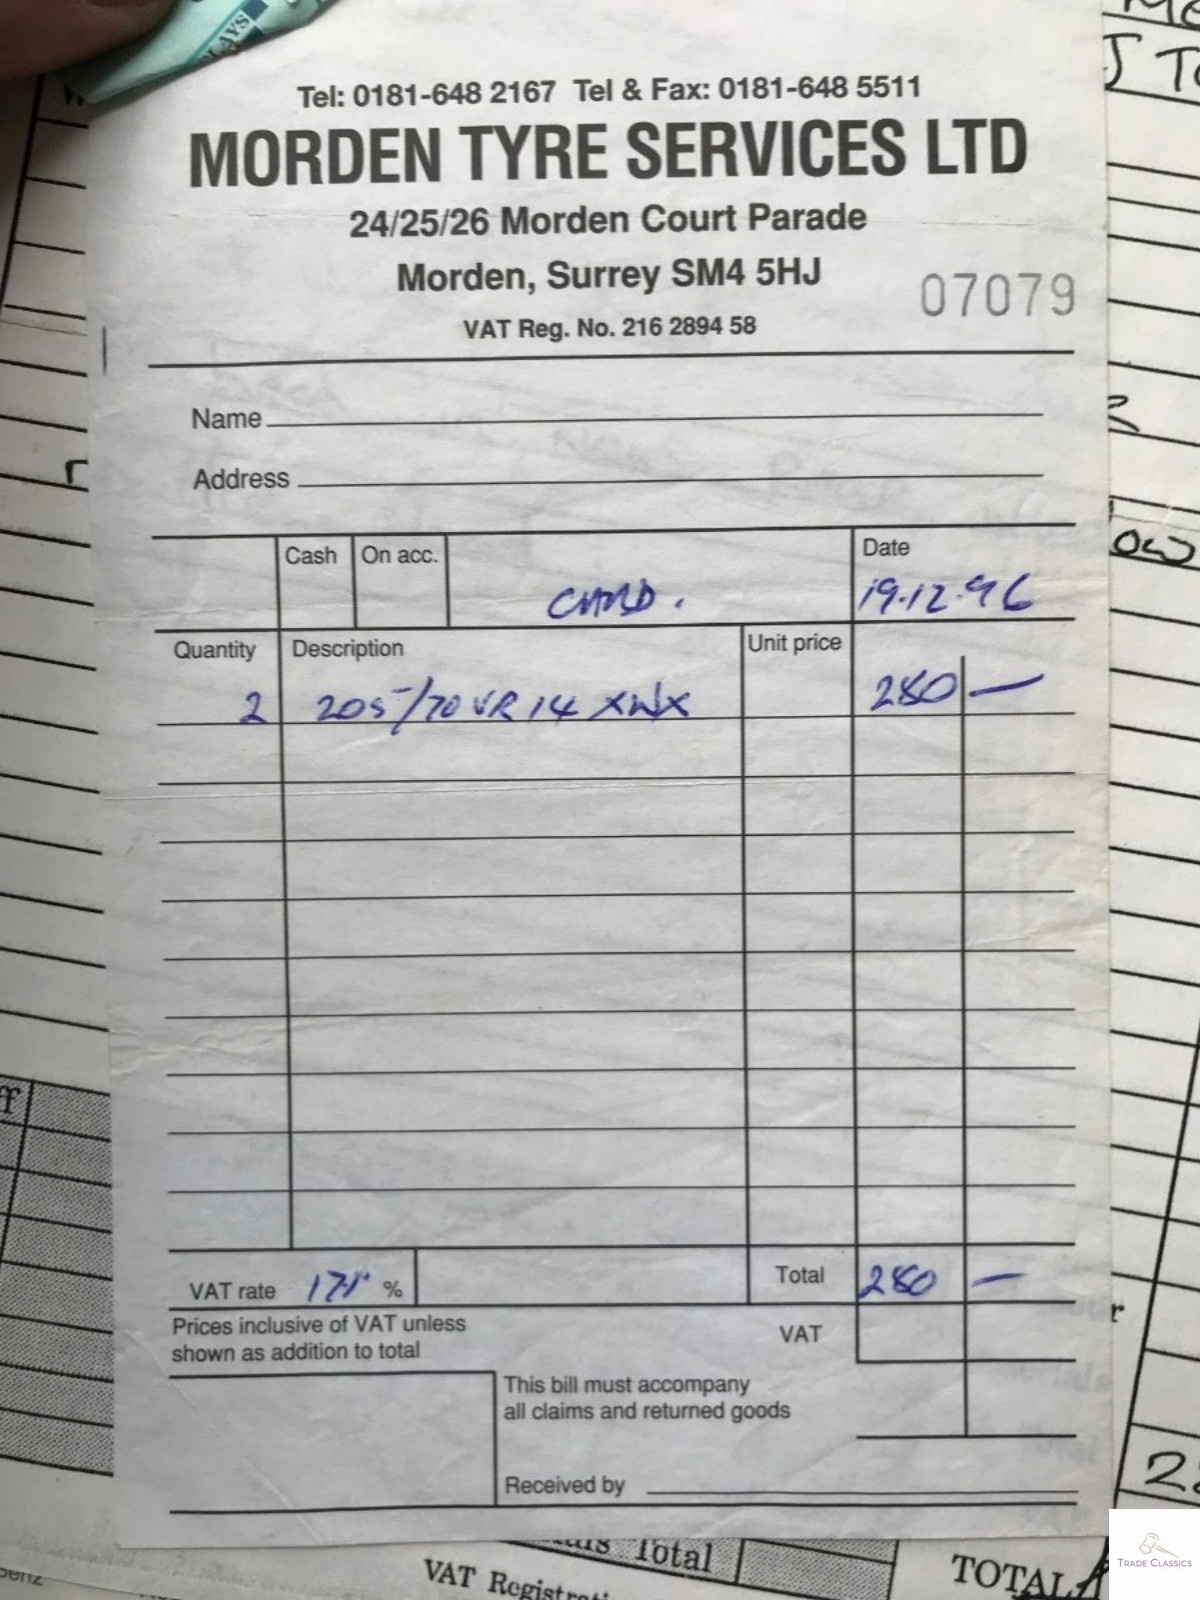 LAYS
Tel: 0181-648 2167 Tel & Fax: 0181-648 5511
MORDEN TYRE SERVICES LTD
24/25/26 Morden Court Parade
Morden, Surrey SM4 5HJ
07079
VAT Reg. No. 216 2894 58
Name
Address
Cash On acc. Date
CARD. 19.12.96
Quantity Description Unit price
2 205/70 VR 14 XWX 280 —
VAT rate 17.5 % Total 280 —
Prices inclusive of VAT unless
shown as addition to total
VAT
This bill must accompany
all claims and returned goods
Received by
Total
VAT Registrati
TOTAL
TRADE CLASSICS